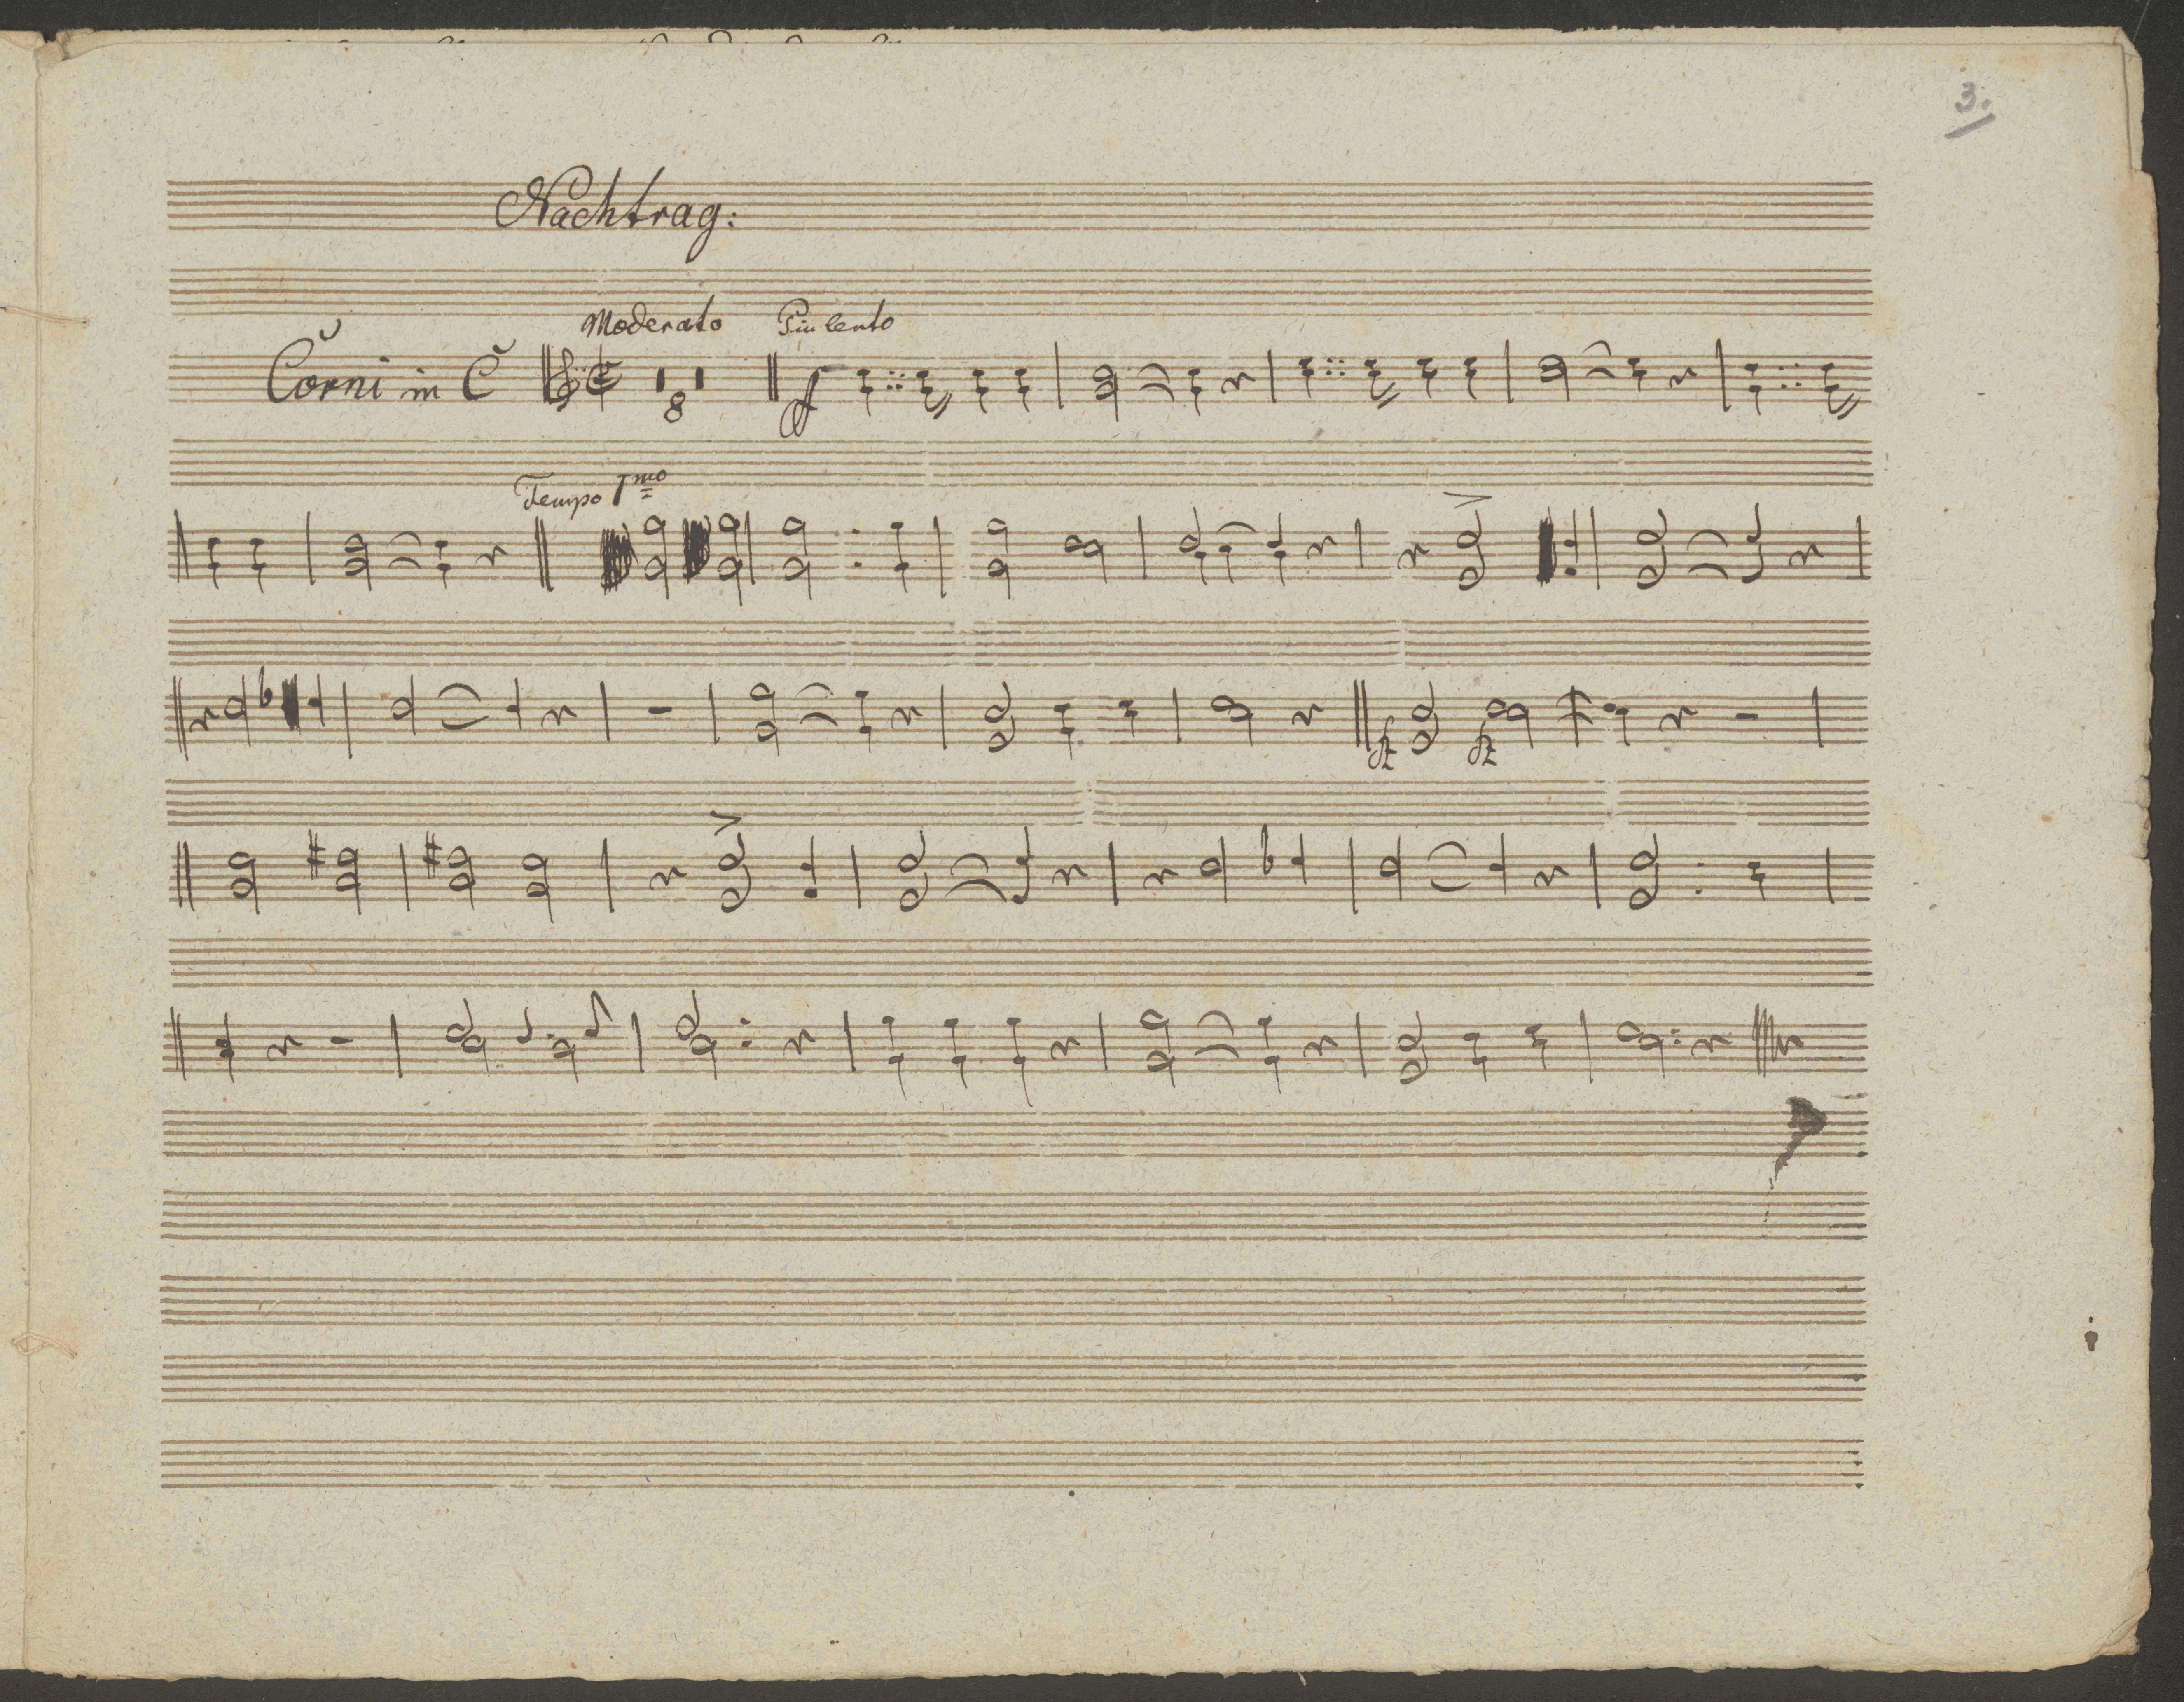 3.
Nachtrag:
Moderato Piu lento
Corni in C 8 f
Tempo 1mo
fz fz